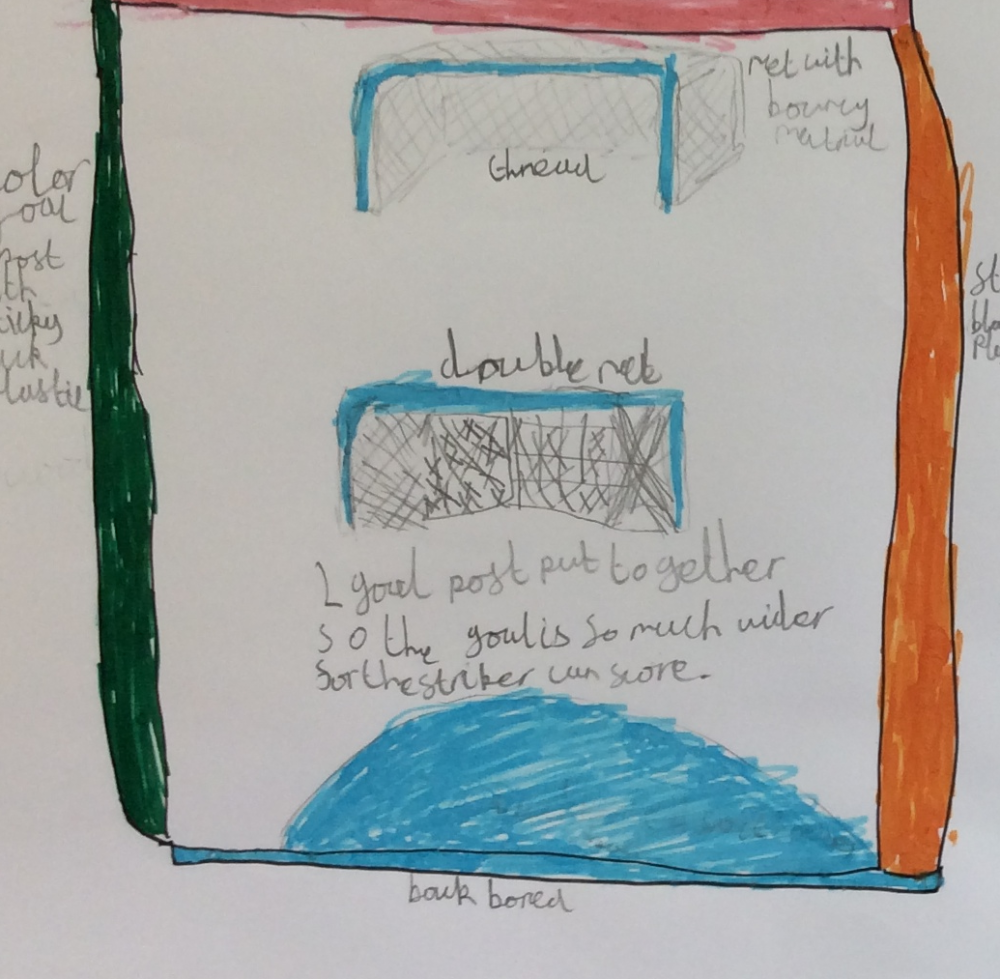 net with
bouncy
thread
olor
oal
post
th
ticky
ack
lastic
st
bla
Pla
double net
2 goal post put together
so the goal is so much wider
sorthestriker can score.
back bored